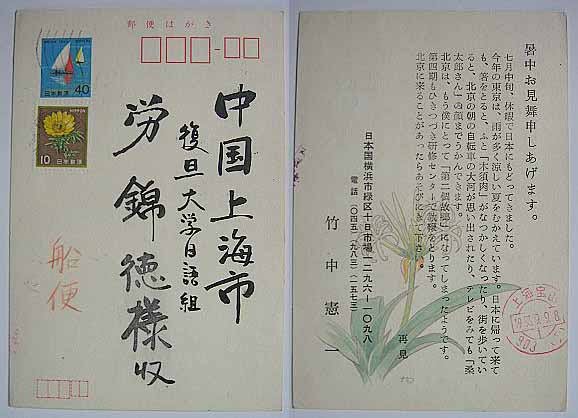 郵便はがき
日本郵便
40
NIPPON
10
日本郵便
中国上海市
復旦大学日語組
労錦徳様収
船便
暑中お見舞申しあげます。
七月中旬、休暇で日本にもどってきました。
今年の東京は、雨が多く涼しい夏をむかえています。日本に帰って来て
も、箸をとると、ふと「木須肉」がなつかしくなったり、街を歩いてい
ると、北京の朝の自転車の大河が思い出されたり、テレビをみても「桑
太郎さん」の顔までうかんできます。
北京は、もう僕にとって「第二個故郷」になってしまったようです。
第四期もひきつづき研修センターで教鞭をとります。
北京に来ることがあったらあそびにきて下さい。
再見
日本国横浜市緑区十日市場一二九六―一〇九八
電話(〇四五)(九八三)(一五七三)
竹中憲一